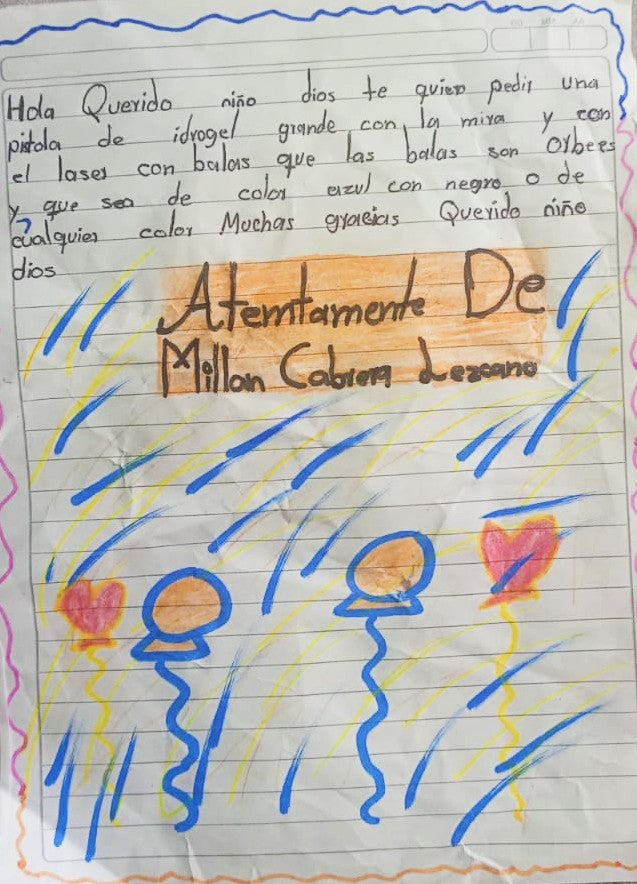 Hola Querido niño dios te quiero pedir una
pistola de idrogel grande con la mira y con
el laser con balas que las balas son Orbees
y que sea de color azul con negro o de
cualquier color Muchas gracias Querido niño
dios
Atemtamente De
Millan Cabrera Lezcano